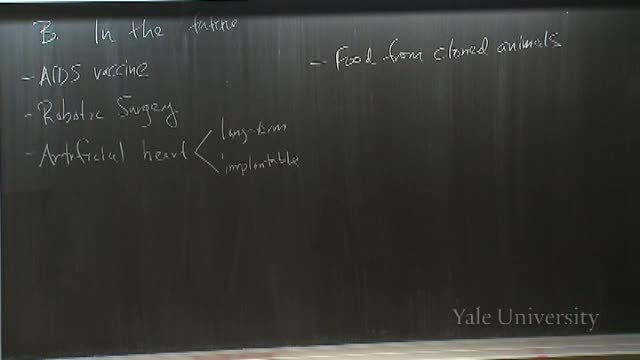 B. In the future
- AIDS vaccine
- Robotic Surgery
- Artificial heart < long-term
implantable
- Food from cloned animals
Yale University